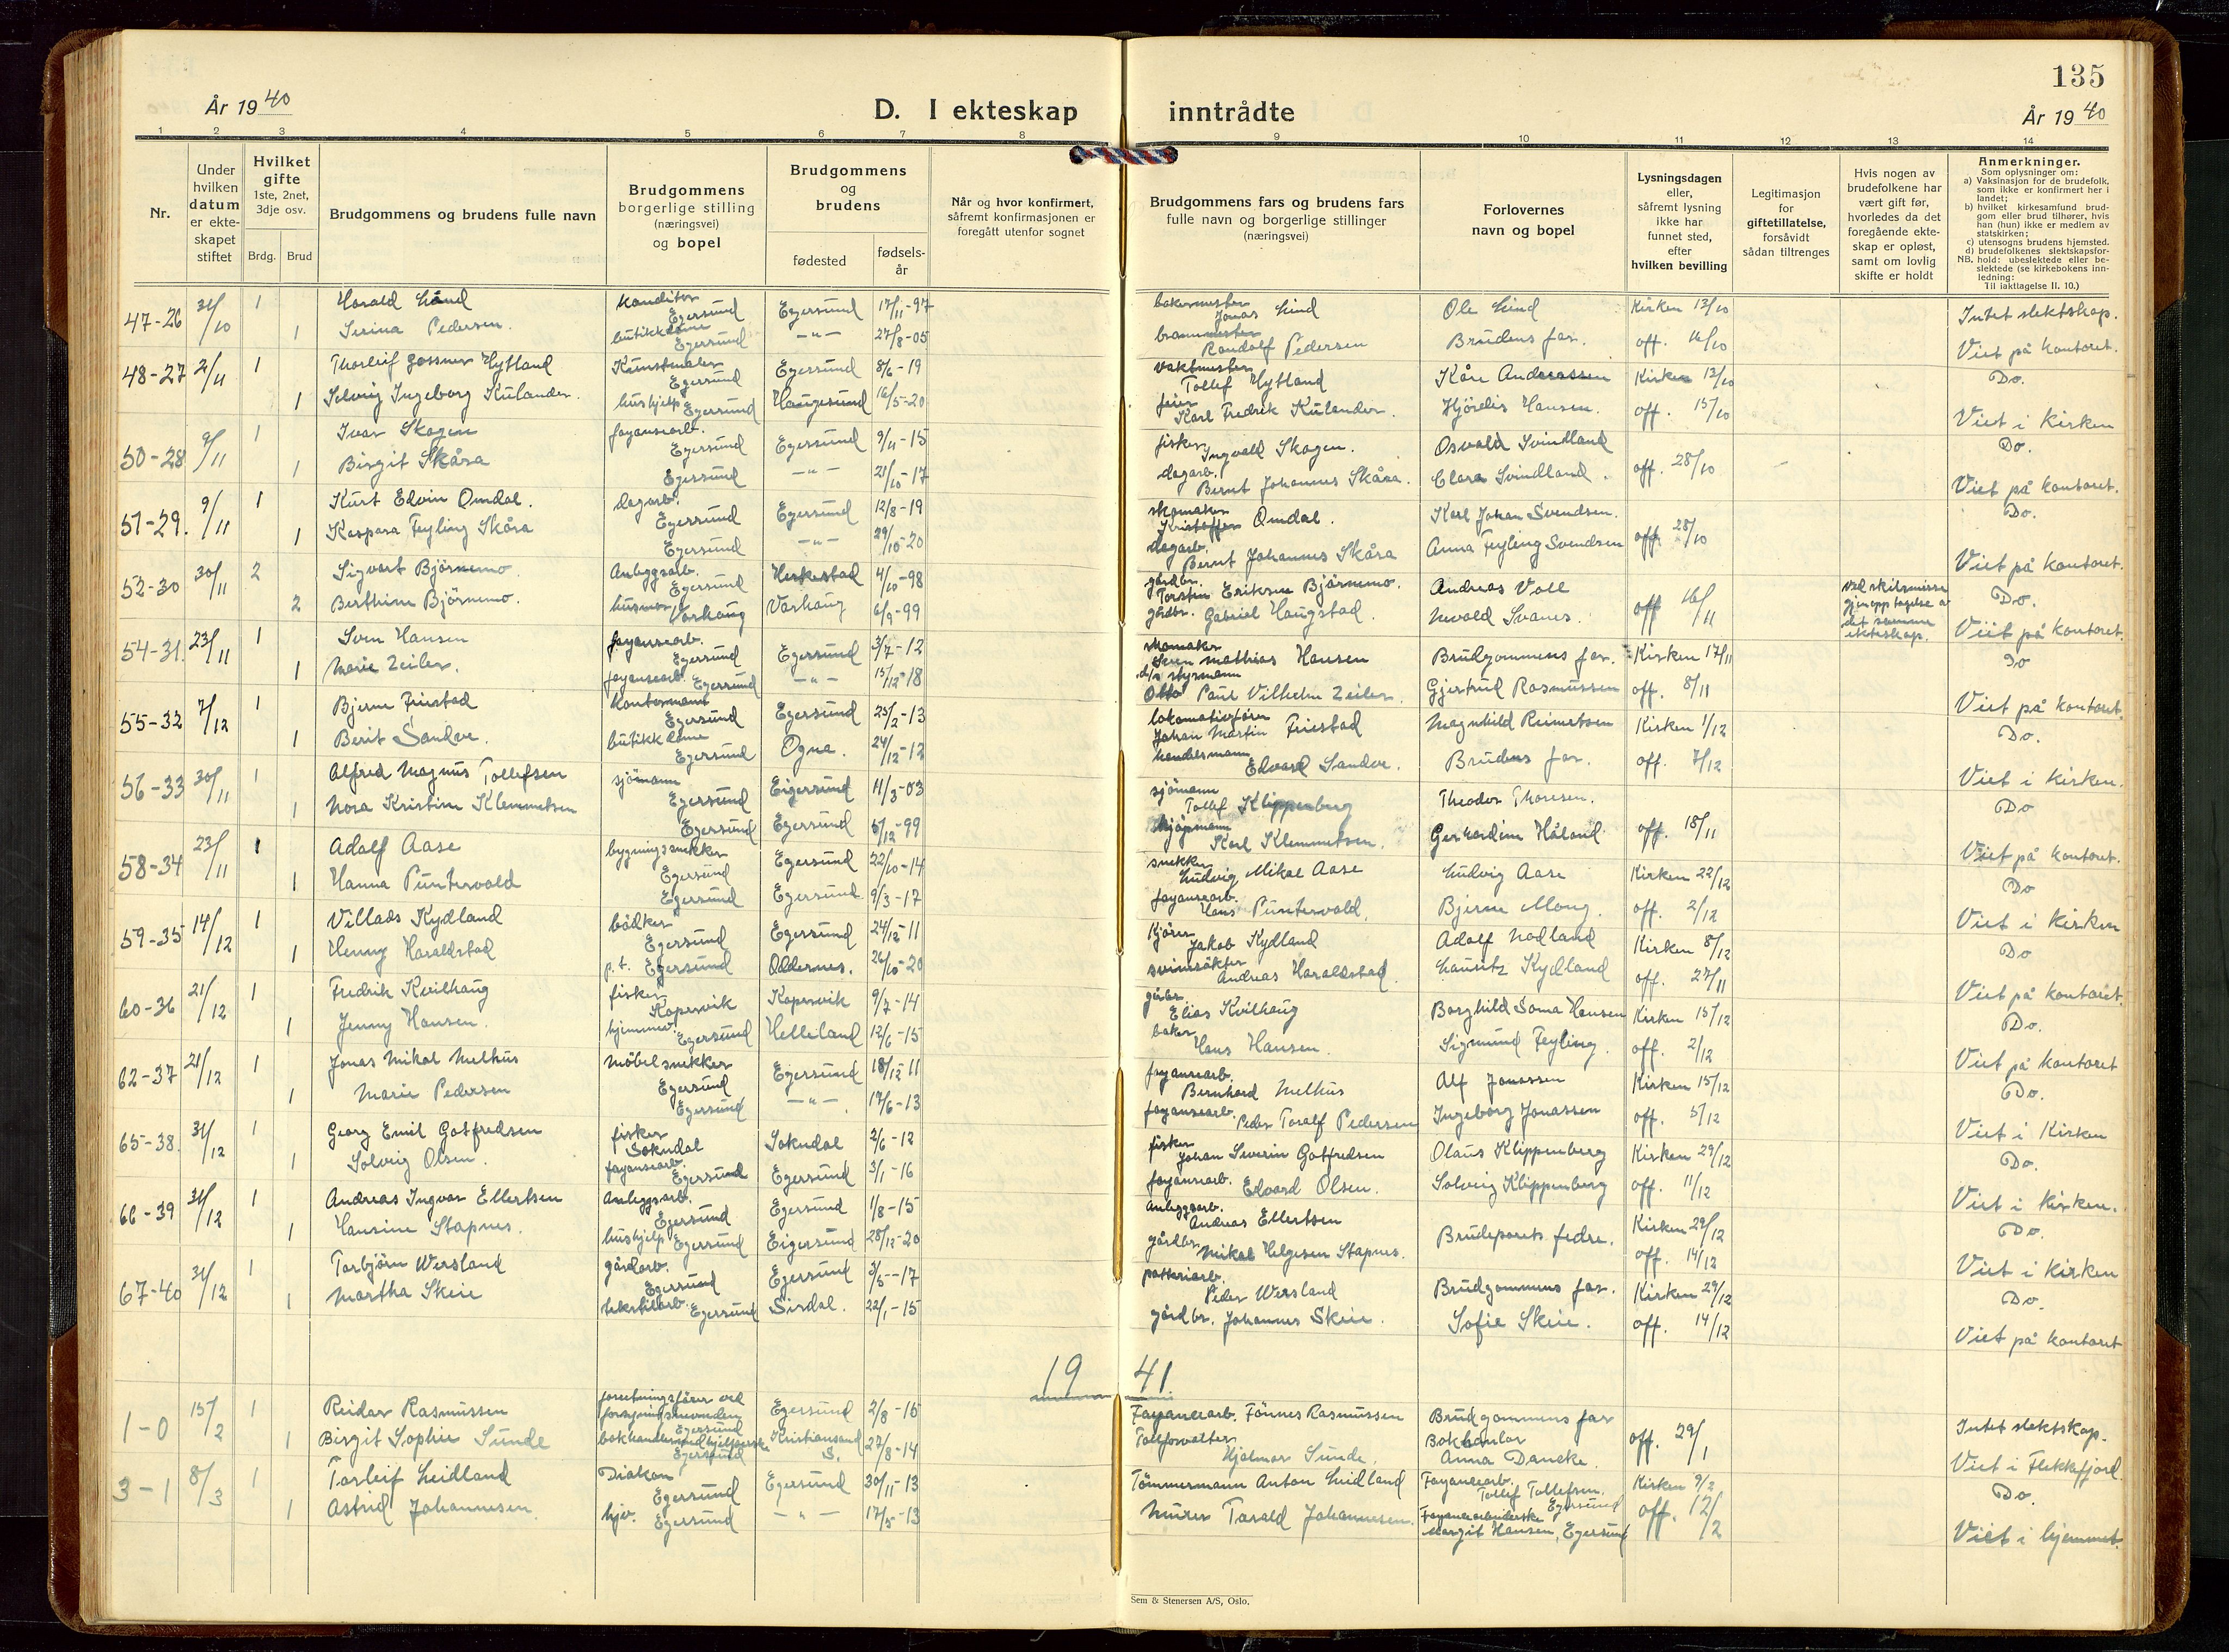 135
År 1940
D. I ekteskap inntrådte
År 1940
1 2 3 4 5 6 7 8 9 10 11 12 13 14
Nr.
Under hvilken datum er ekteskapet stiftet
Hvilket gifte
1ste, 2net, 3dje osv.
Brdg. Brud
Brudgommens og brudens fulle navn
Brudgommens borgerlige stilling (næringsvei) og bopel
Brudgommens og brudens
fødested
fødsels-år
Når og hvor konfirmert, såfremt konfirmasjonen er foregått utenfor sognet
Brudgommens fars og brudens fars fulle navn og borgerlige stillinger (næringsvei)
Forlovernes navn og bopel
Lysningsdagen eller, såfremt lysning ikke har funnet sted, efter hvilken bevilling
Legitimasjon for giftetillatelse, forsåvidt sådan tiltrenges
Hvis nogen av brudefolkene har vært gift før, hvorledes da det foregående ekteskap er opløst, samt om lovlig skifte er holdt
Anmerkninger.
Som oplysninger om:
a) Vaksinasjon for de brudefolk, som ikke er konfirmert her i landet;
b) hvilket kirkesamfund brudgom eller brud tilhører, hvis han (hun) ikke er medlem av statskirken;
c) utensogns brudens hjemsted.
d) brudefolkenes slektskapsforhold: ubeslektede eller beslektede (se kirkebokens innledning:
NB. Til iakttagelse II. 10.)
47-26 31/10 1 Harald Lind konditor Egersund Egersund 17/11-97 bakermester Jonas Lind Ole Lind Kirken 13/10 Intet slektskap.
1 Serina Pedersen. butikkdame Egersund -"- 27/8-05 brannmester Randolf Pedersen Brudens far. off. 16/10 Viet på kontoret.
48-27 2/11 1 Thorleif Gossner Hytland Kunstmaler Egersund Egersund 8/6-19 vaktmester Tollef Hytland Kåre Andreassen Kirken 13/10 Do.
1 Solveig Ingeborg Kulander. hushjelp Egersund Haugesund 16/5-20 feier Karl Fredrik Kulander. Hjördis Hansen. off. 15/10 Viet i Kirken
50-28 9/11 1 Ivar Skogen fayansearb. Egersund Egersund 9/4-15 fisker Ingvald Skogen. Osvald Svindland Do.
1 Birgit Skåra Egersund -"- 21/10-17 dagarb. Bernt Johannes Skåra. Clara Svindland. off. 28/10 Viet på kontoret.
51-29. 9/11 1 Kurt Edvin Omdal. dagarb. Egersund Egersund 12/8-19 skomaker Kristoffer Omdal. Karl Johan Svendsen. Do.
1 Kaspara Feyling Skåra Egersund -"- 29/10-20 dagarb. Bernt Johannes Skåra Anna Feyling Svendsen off. 28/10 Viet på kontoret.
52-30 30/11 2 Sigvart Björnemo Anleggsarb. Egersund Heskestad 4/10-98 gårdbr. Torstein Eriksen Björnemo. Andreas Voll ved skilsmisse gjenopptagelse av det samme ekteskap. Do.
2 Berthine Björnemo. husmor Varhaug Varhaug 6/9-99 gårdbr. Gabriel Haugstad. Nevald Svanes. off 16/11 Viet på kontoret.
54-31. 23/11 1 Sven Hansen fayansearb. Egersund Egersund 3/7-12 skomaker Sören Mathias Hansen Brudgommens far. Kirken 17/11 Do
1 Marie Zeiler. fayansearb. Egersund -"- 15/12-18 d/s styrmann Otto Paul Vilhelm Zeiler. Gjertrud Rasmussen off. 8/11 Viet på kontoret.
55-32 7/12 1 Bjerne Friestad kontormann Egersund Egersund 25/2-13 lokomotivfører Johan Martin Friestad Magnhild Reimertsen Kirken 1/12 Do.
1 Berit Sandve. butikkdame Egersund Ogna. 24/12-12 handelsmann Edvard Sandve. Brudens far. off. 7/12 Viet i kirken.
56-33 30/11 1 Alfred Magnus Tollefsen sjömann Egersund Eigersund 11/3-03 sjömann Tollef Klippenberg Theodor Thorsen. Do
1 Nora Kristine Klemmetsen Egersund Egersund 5/12-99 kjöpmann Karl Klemmetsen. Gerhardine Håland off. 18/11 Viet på kontoret.
58-34 23/11 1 Adolf Aase bygningssnekker Egersund Egersund 22/10-14 snekker Ludvig Mikal Aase Ludvig Aase Kirken 22/12 Do
1 Hanna Puntervold Egersund Egersund 9/3-17 fayansearb. Hans Puntervold. Bjerne Mong. off. 2/12 Viet i kirken
59-35 14/12 1 Villads Kydland bödker Egersund Egersund 24/12-11 kjörer Jakob Kydland Adolf Nodland Kirken 8/12 Do
1 Henny Haraldstad p.t. Egersund Oddernes. 26/10-20 svinerökter Andreas Haraldstad. Lauritz Kydland off. 27/11 Viet på kontoret.
60-36 21/12 1 Fredrik Kvilhaug fisker Kopervik Kopervik 9/7-14 gårbr. Elias Kvilhaug Borghild Soma Hansen Kirken 15/12 Do.
1 Jenny Hansen. hjemmev. Egersund Helleland 12/6-15 baker Hans Hansen. Sigmund Feyling. off. 2/12 Viet på kontoret
62-37 21/12 1 Jonas Mikal Melhus möbelsnekker Egersund Egersund 18/12-11 fayansearb. Bernhard Melhus Alf Jonassen Kirken 15/12 Do.
1 Marie Pedersen Egersund -"- 17/6-13 fayansearb. Peder Toralf Pedersen Ingeborg Jonassen off. 5/12 Viet i Kirken
65-38. 31/12 1 Georg Emil Gotfredsen fisker Sokndal Sokndal 2/6-12 fisker Johan Severin Gotfredsen Olaus Klippenberg Kirken 29/12 Do.
1 Solveig Olsen. fayansearb. Egersund Egersund 3/1-16 fayansearb. Edvard Olsen. Solveig Klippenberg off. 11/12 Viet i kirken.
66-39 31/12 1 Andreas Ingvar Ellertsen Anleggsarb. Egersund Egersund 1/8-15 anleggsarb. Andreas Ellertsen Brudeparets fedre. Kirken 29/12 Do.
1 Hansine Stapnes. hushjelp Egersund Eigersund 28/12-20 gårdbr. Mikal Helgesen Stapnes. off. 14/12 Viet i kirken
67-40 31/12 1 Torbjörn Wersland gårdarb. Egersund Egersund 3/5-17 potteriarb. Peder Wersland Brudgommens far. Kirken 29/12 Do.
1 Martha Skeie tekstilarb. Egersund Sirdal. 22/1-15 gårdbr. Johannes Skeie. Sofie Skeie. off. 14/12 Viet på kontoret
19 41
1-0 15/2 1 Reidar Rasmussen forretningsfører ved forsyningsnevnden Egersund Egersund 2/8-15 Fayansearb. Tönnes Rasmussen Brudgommens far Intet slektskap.
1 Birgit Sophie Sunde bokhandlermedhjelperske Egersund Kristiansand S. 27/8-14 Tollforvalter Hjalmar Sunde. Bokhandler Anna Dancke. off. 29/1 Viet i Flekkefjord.
3-1 8/3 1 Torleif Leidland Diakon Egersund Egersund 30/11-13 Tömmermann Anton Leidland Fayansearb. Tollef Tollefsen. Egersund Kirken 9/2 Do.
1 Astrid Johannesen. hjv. Egersund -"- 17/5-13 Murer Torald Johannesen. Fayansearbeiderske Margit Hansen, Egersund off. 12/2 Viet i hjemmet.
Sem & Stenersen A/S, Oslo.